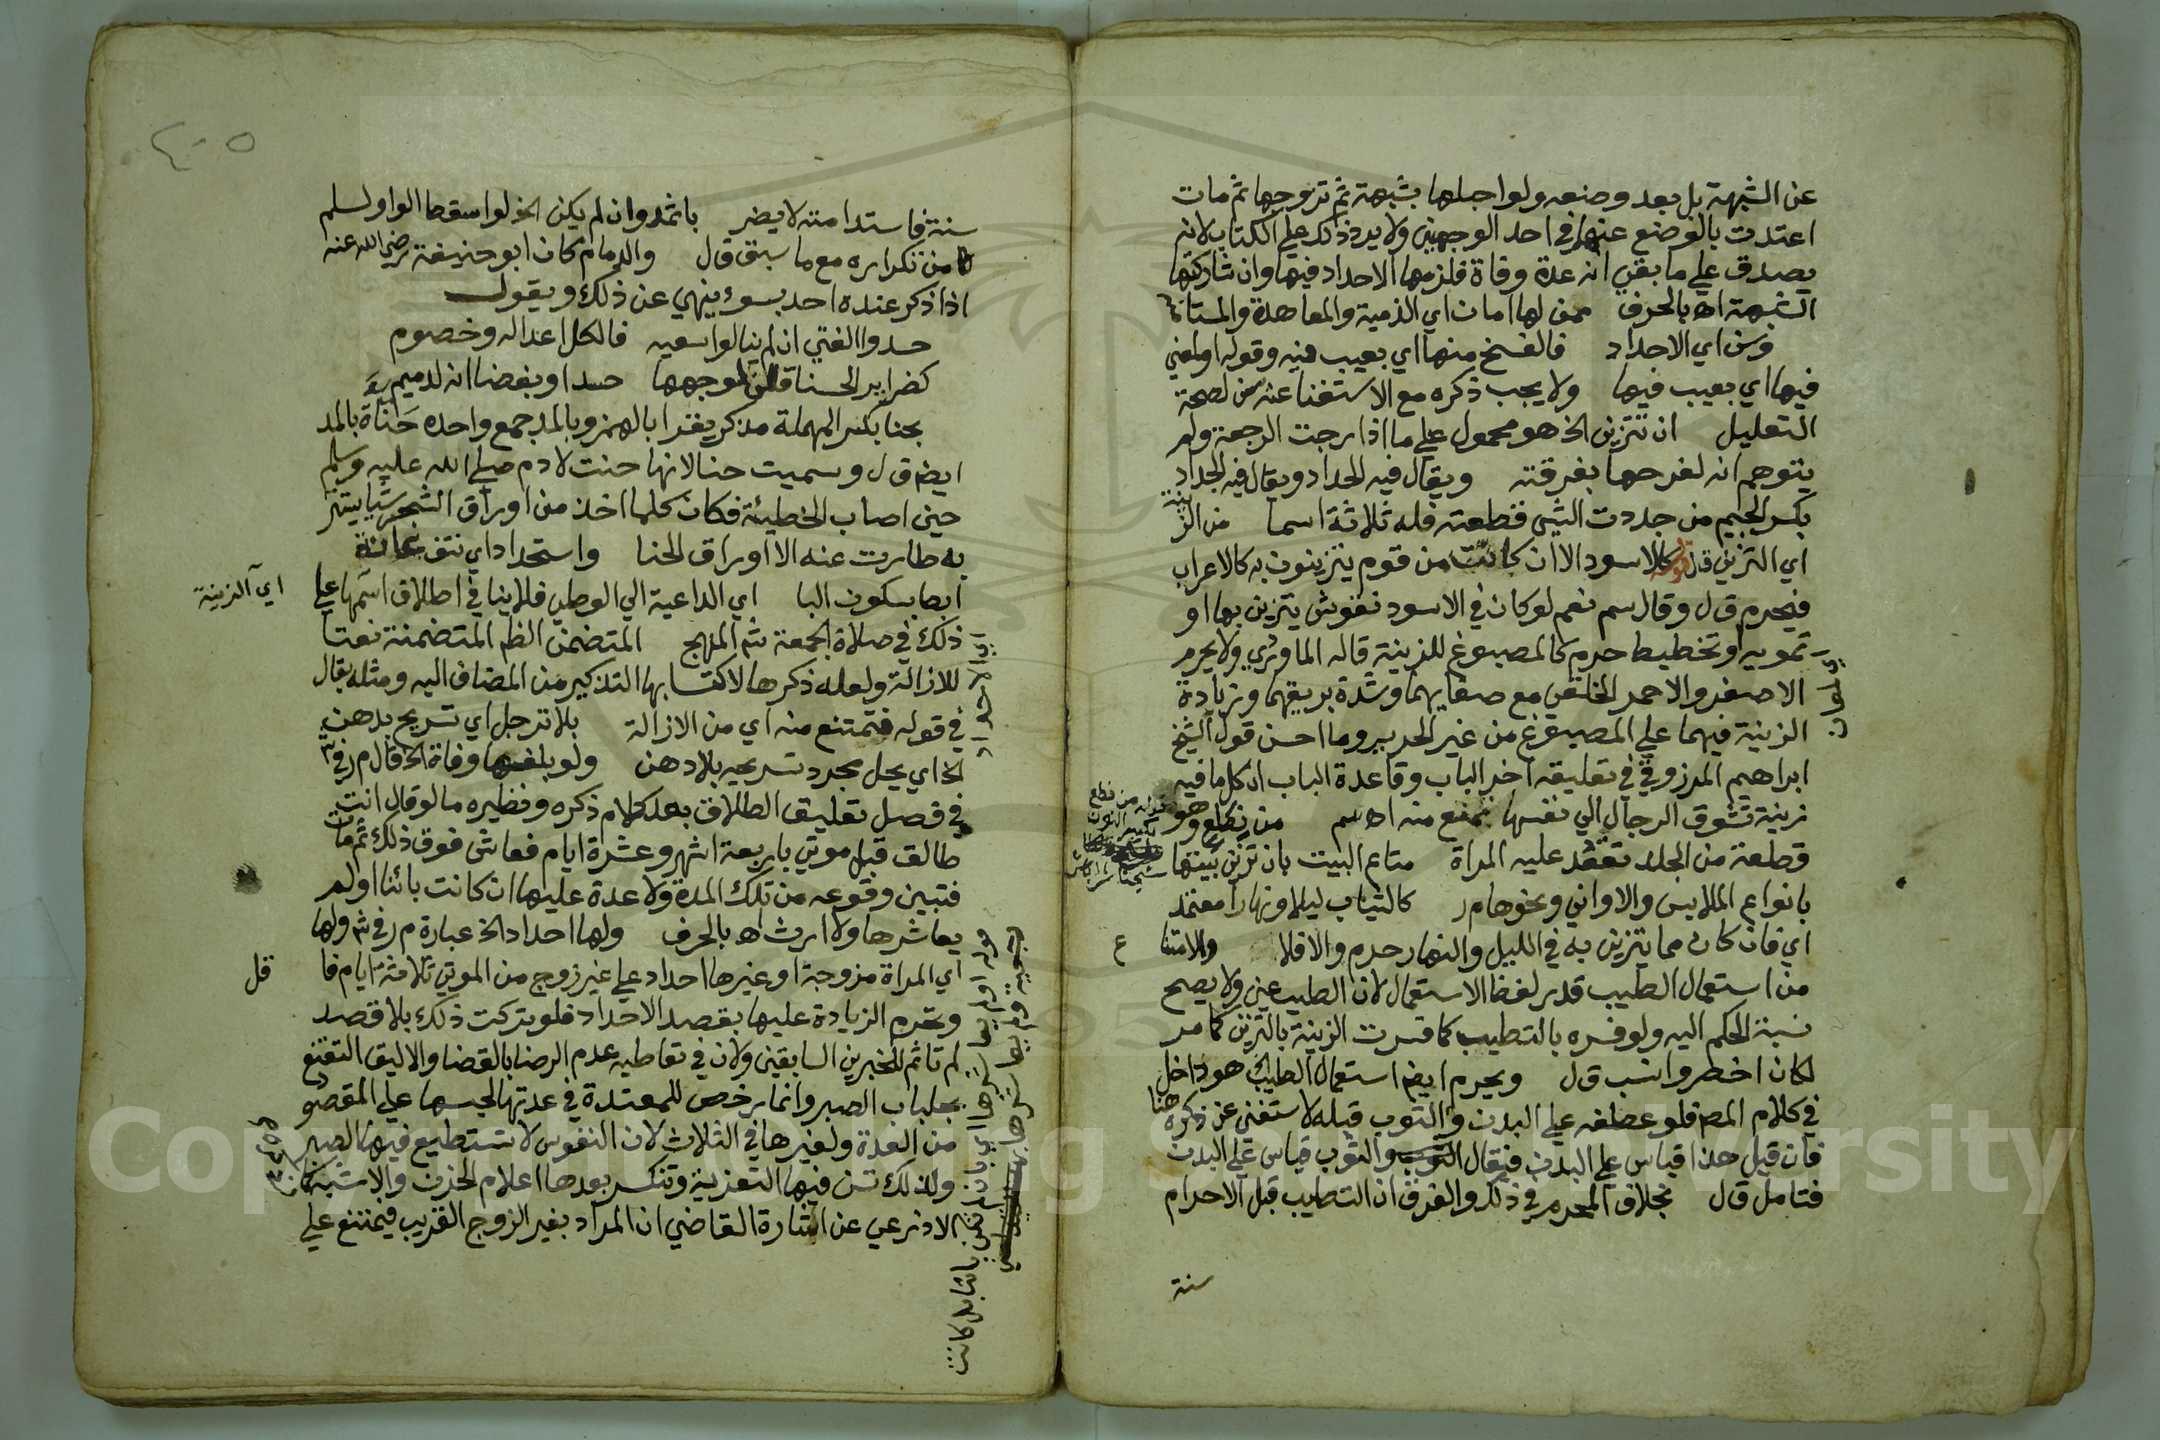 عن الشبهة بل بعد وضعه ولو احبلها بشبهة ثم تزوجها ثم مات
اعتدت بالوضع عنهما في احد الوجهين ولا يرد ذلك علي الكتاب لانه
يصدق علي ما بقي انه عدة وفاة فلزمها الاحداد فيها وان شاركتها
الشبهة اه بالحرف ممن لها امان اي الذمية والمعاهدة والمستامنة
وسن اي الاحداد فالفسخ منها اي بعيب فيه وقوله او لمعني
فيها اي بعيب فيها ولا يجب ذكره مع الاستغنا عنه لصحة
التعليل ان تتزين الخ هو محمول علي ما اذا رجت الرجعة ولم
يتوهم انه لفرحها بفرقته ويقال فيه الحداد ويقال فيه الجداد
بكسر الجيم من جددت الشي قطعته فله ثلاثة اسما من الزينة
اي التزين قال قوله كالاسود الا ان كانت من قوم يتزينون به كالاعراب
فيحرم ق ل وقال سم نعم لو كان في الاسود نقوش يتزين بها او
تمويه او تخطيط حرم كالمصبوغ للزينة قاله الماوردي ولا يحرم
الاصفر والاحمر الخلقي مع صفايهما وشدة بريقهما وزيادة
الزينة فيهما علي المصبوغ من غير الحرير وما احسن قول الشيخ
ابراهيم المرزوقي في تعليقه اخر الباب وقاعدة الباب ان كل ما فيه
زينة تشوق الرجال الي نفسها تمنع منه اه سم من نطع وهو
قطعة من الجلد تقعد عليه المراة متاع البيت بان تزين بيتها
بانواع الملابس والاواني ونحوها م ر كالثياب ليلا ونهارا معتمد
اي فان كان مما يتزين به في الليل والنهار حرم والا فلا والامتنا ع
من استعمال الطيب قدر لفظ الاستعمال لان الطيب عين ولا يصح
نسبة الحكم اليه ولو فسره بالتطيب كما فسرت الزينة بالتزين كما مر
لكان اخصر وانسب ق ل ويحرم ايضا استعمال الطيب الخ هو داخل
في كلام المص فلو عطفه علي البدن والثوب قبله لاستغني عن ذكره هنا
فان قيل هذا قياس علي البدن فيقال والثوب قياس علي البدن
فتامل قال بخلاف المحرم في ذلك والفرق ان التطيب قبل الاحرام
سنة
قوله من نطع
بكسر النون
٤٠٥
سنة فاستدامته لا يضر باثمد وان لم يكن الخ لو اسقط الواو لسلم
من تكراره مع ما سبق قال والامام كان ابو حنيفة رضي الله عنه
اذا ذكر عنده احد بسوء ينهي عن ذلك ويقول
حسدوا الفتي ان لم ينالوا سعيه فالكل اعدا له وخصوم
كضراير الحسنا قلن لوجهها حسدا وبغضا انه لدميم
بحنا بكسر المهملة مذكر يقرا بالهمز وبالمد جمع واحده حناة بالمد
ايض ق ل وسميت حنا لانها حنت لادم صلي الله عليه وسلم
حين اصاب الخطيئة فكان كلما اخذ من اوراق الشجر شيا يستتر
به طارت عنه الا اوراق الحنا واستحداد اي نتف عانة
ابط بسكون البا اي الداعية الي الوطي فلا ينافي اطلاق اسمها علي
ذلك في صلاة الجمعة شم المنهج المتضمن الظ المتضمنة نعتا
للازالة ولعله ذكرها لاكتسابها التذكير من المضاف اليه ومثله يقال
في قوله فتمتنع منه اي من الازالة بلا ترجل اي تسريح بدهن
الخ اي يحل مجرد تسريحه بلا دهن ولو بلغتها وفاة الخ قال م ر في ش
في فصل تعليق الطلاق بعد كلام ذكره ونظيره ما لو قال انت
طالق قبل موتي باربعة اشهر وعشرة ايام فعاش فوق ذلك ثم مات
فتبين وقوعه من تلك المدة ولا عدة عليها ان كانت بائنا او لم
يعاشرها ولا ارث اه بالحرف ولها احداد الخ عبارة م ر في ش ولها
اي المراة مزوجة او غيرها احداد علي غير زوج من الموتي ثلاثة ايام فا قل
وتحرم الزيادة عليها بقصد الاحداد فلو تركت ذلك بلا قصد
لم تاثم للخبرين السابقين ولان في تعاطيه عدم الرضا بالقضا والاليق التقنع
بجلباب الصبر وانما رخص للمعتدة في عدتها لحبسها علي المقصو
من العدة ولغيرها في الثلاث لان النفوس لا تستطيع فيها الصبر
ولذلك تسن فيها التعزية وتنكسر بعدها اعلام الحزن والاشبه كما
الاذرعي عن اشارة القاضي ان المراد بغير الزوج القريب فيمتنع علي
اي الزينة
Copyright © King Saud University